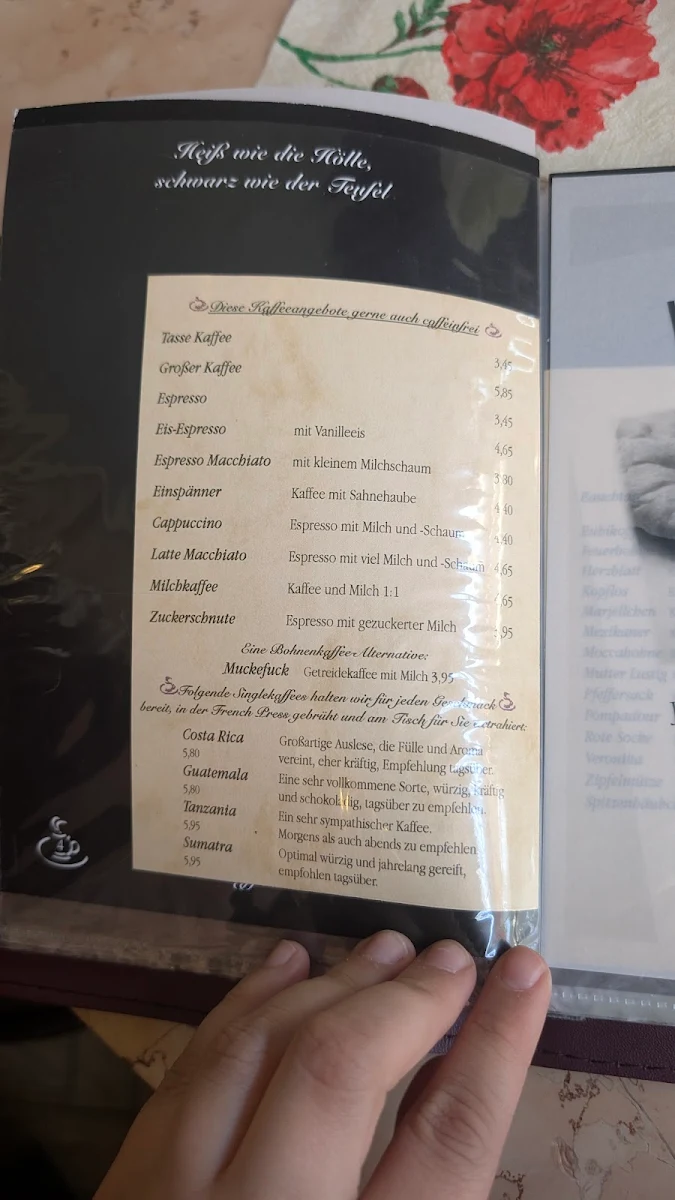 Heiß wie die Hölle,
schwarz wie der Teufel
Diese Kaffeeangebote gerne auch coffeinfrei
Tasse Kaffee 3,45
Großer Kaffee 5,85
Espresso 3,45
Eis-Espresso mit Vanilleeis 4,65
Espresso Macchiato mit kleinem Milchschaum 3,80
Einspänner Kaffee mit Sahnehaube 4,40
Cappuccino Espresso mit Milch und -Schaum
Latte Macchiato Espresso mit viel Milch und -Schaum 4,65
Milchkaffee Kaffee und Milch 1:1
Zuckerschnute Espresso mit gezuckerter Milch
Eine Bohnenkaffee-Alternative:
Muckefuck Getreidekaffee mit Milch 3,95
Folgende Singlekaffees halten wir für jeden Geschmack
bereit, in der French Press gebrüht und am Tisch für Sie extrahiert:
Costa Rica Großartige Auslese, die Fülle und Aroma
5,80 vereint, eher kräftig, Empfehlung tagsüber.
Guatemala Eine sehr vollkommene Sorte, würzig, kräftig
5,80 und schokoladig, tagsüber zu empfehlen.
Tanzania Ein sehr sympathischer Kaffee.
5,95 Morgens als auch abends zu empfehlen
Sumatra Optimal würzig und jahrelang gereift,
5,95 empfohlen tagsüber.
4
Herzblatt
Kopflos
Mexikaner
Pfeffersack
Pompadour
Rote Socke
Veronika
Zipfelmütze